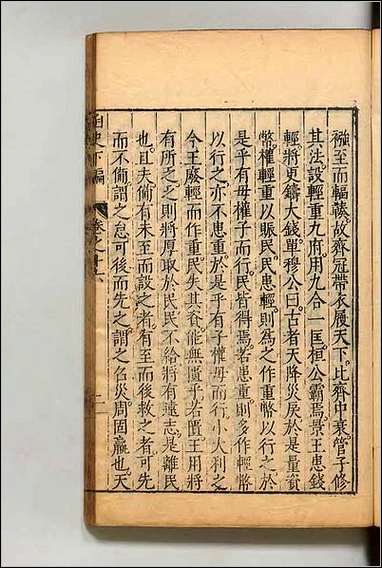 襁至而輻輳故齊冠帶衣履天下比齊中衰管子修
其法設輕重九府用九合一匡桓公霸焉景王患錢
輕將更鑄大錢單穆公曰古者天降災戾於是量資
幣權輕重以賑民民患輕則爲之作重幣以行之於
是乎有母權子而行民皆得焉若患重則多作輕幣
以行之亦不患重於是乎有子權母而行小大利之
今王廢輕而作重民失其資能無匱乎若匱王用將
有所乏乏則將厚取於民民不給將有遠志是離民
也且夫備有未至而設之者有至而後救之者有可先
而不備謂之怠可後而先之謂之召災周固羸也天
史下編
卷之十六